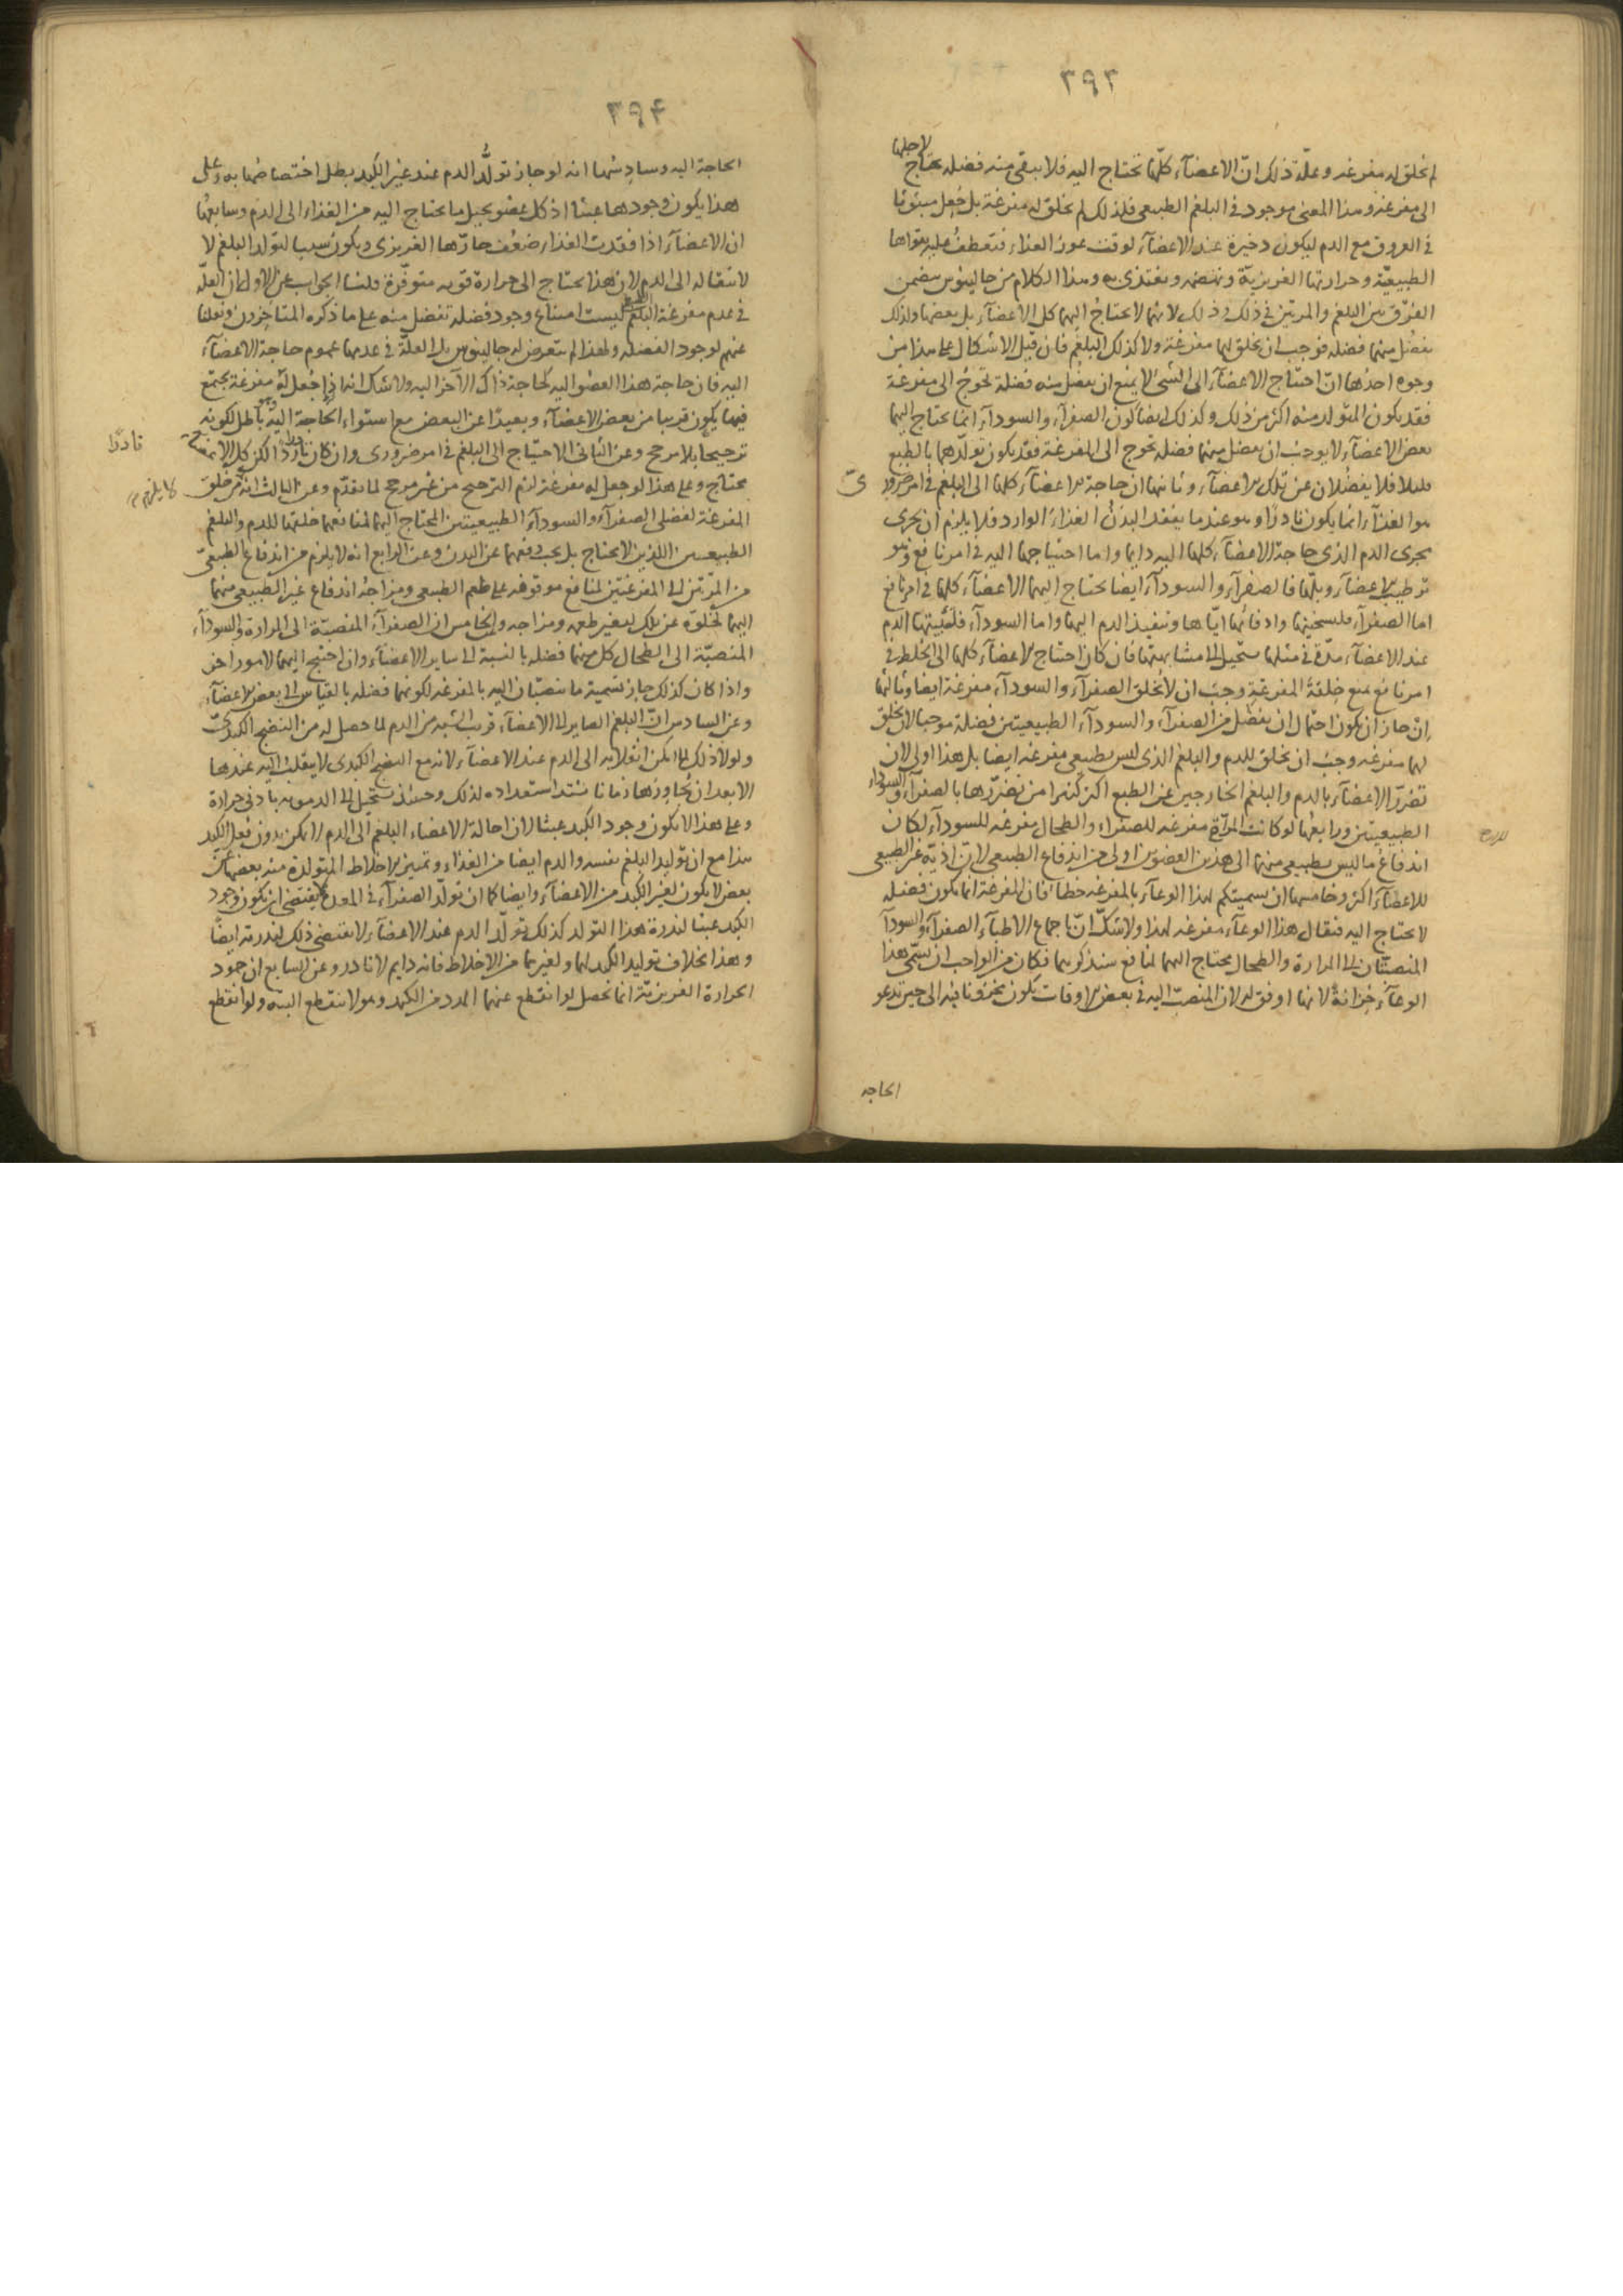 ٣٩٣
لاجلها
لم تخلق له مفرغة وعلة ذلك انّ الاعضآء كلّها تحتاج اليه فلا يبقى منه فضله يحتاج
الى مفرغة وهذا المعنى موجود في البلغم الطبيعى فلذلك لم تخلق له مفرغة بل جُعل مبثوثا
في العروق مع الدم ليكون ذخيرة عند الاعضآء لوقت عوز الغذاء فتعطف عليه بقواها
الطبيعيّة وحرارتها الغريزيّة وتهضمه وتغتذى به وهذا الكلام من جالينوس يتضمن
الفرق بين البلغم والمرتين في ذلك وذلك لانهما لا يحتاج اليهما كل الاعضآء بل بعضها ولذلك
يفضُل منهما فضله فوجب ان يخلق لهما مفرغة ولا كذلك البلغم فان قيل الاشكال على هذا من
وجوه احدُها انّ احتياج الاعضآء الى الشئ لا يمنع ان يفضُل منه فضلة تحوجُ الى مفرغة
فقد يكون المتولد منه اكثر من ذلك وكذلك ايضا كون الصفرآء والسودآء انما يحتاج اليهما
بعض الاعضآء لا يوجبُ ان يفضل منهما فضله تحوج الى المفرغة فقد يكون تولّدهما بالطبع
قليلا فلا يفضُلان عن تلك الاعضآء وثانيها ان حاجة الاعضآء كلها الى البلغم في امر ضرورى
هو الغذآء انما يكون نادرًا وهو عند ما يفقد البدنُ الغذاءَ الوارد فلا يلزم ان يجرى
مجرى الدم الذى حاجة الاعضآء كلها اليه دايما واما احتياجها اليه في امر نافع وهو
ترطيب الاعضآء وبلّها فالصفرآء والسودآء ايضا يحتاج اليهما الاعضآء كلها في امر نافع
اما الصفرآء فلتسخينها وادفائها ايّاها وتنفيذ الدم اليها واما السودآء فلتثبيتها الدم
عند الاعضآء مدّة في مثلها يستحيل الى مشابهتها فان كان احتياج الاعضآء كلها الى الخلط في
امر نافع يمنع خِلقةَ المفرغة وجبَ ان لا تخلق الصفرآء والسودآء مفرغة ايضا وثالثها
اِن جاز ان يكون احتمال ان يفضل من الصفرآء والسودآء الطبيعيتين فضلة موجبا لان يخلق
لهما مفرغه وجبَ ان تخلق للدم والبلغم الذى ليس بطبيعى مفرغه ايضا بل هذا اولى لان
تضرّر الاعضآء بالدم والبلغم الخارجين عن الطبع اكثر كثيرا من تضرّرها بالصفرآء والسوداء
الطبيعيتين ورابعُها لو كانت المرآرة مفرغه للصفراء والطحال مفرغه للسودآء لكان
اندفاعُ ما ليس بطبيعى منهما الى هذين العضوين اولى من اندفاع الطبيعى لانّ اذيّة غير الطبيعى
للاعضآء اكثر وخامسها ان تسميتكم لهذا الوعآء بالمفرغه خطا فان المفرغة انما تكون لفضله
لا يحتاج اليه فيقال هذا الوعآء مفرغه لهذا ولا شكّ انّ باجماع الاطبآء الصفرآء والسودآء
المنصبّتان الى المرارة والطحال يحتاج اليهما لمنافع سنذكرهما فكان من الواجب ان يسمّى هذا
الوعآء خِزانةً لانها اوفق له لان المنصبّ اليه في بعض الاوقات يكون مخزونا فيه الى حين تدعو
الحاجه
٣٩٤
الحاجة اليه وسادسُها انه لو جاز تولُّد الدم عند غير الكبد بطل اختصاصُها به وعلى
هذا يكون وجودها عبثا اذ كل عضو يحيل ما يحتاج اليه من الغذاء الى الدم وسابعُها
ان الاعضآء اذا فقدت الغذاء ضعُف حارّها الغريزى ويكون سببا لتولد البلغم لا
لانتقاله الى الدم لان هذا يحتاج الى حرارة قويه متوفّرة قلنا الجواب عن الاول ان العلّة
في عدم مفرغة البلغم ليست امتناع وجود فضله تفضل منه على ما ذكره المتاخرون ونقلنا
عنهم لوجود الفضله ولهذا لم يتعرض له جالينوس بل العلّة في عدمها عموم حاجة الاعضآء
اليه فان حاجة هذا العضو اليه كحاجة ذاك الآخر اليه ولا شك انه اذا جُعل له مفرغة يجتمع
فيها يكون قريبا من بعض الاعضآء وبعيدًا عن البعض مع استواء الحاجة اليه وهو باطل لكونه
ترجيحا بلا مرجح وعن الثانى الاحتياج الى البلغم في امر ضرورى وان كان نادرا لكن كل الاعضآء
نادرًا
يحتاج وعلى هذا لو جعل له مفرغة لزم الترجيح من غير مرجح لما تقدّم وعن الثالث انه من خلق
لا يلزم
المفرغة لفضلى الصفرآء والسودآء الطبيعيتين المحتاج اليهما لمنافعهما خلقها للدم والبلغم
الطبيعيين اللذين لا يحتاج بل يجب دفعهما عن البدن وعن الرابع انه لا يلزم من اندفاع الطبيعى
من المرّتين الى المفرغتين لمنافع موقوفه على طعم الطبيعى ومزاجهُ اندفاع غير الطّبيعى منهما
اليهما لخلوّه عن تلك لتغير طعمه ومزاجه وعن الخامس ان الصفرآءَ المنصبّة الى المرارة والسودآء
المنصبّة الى الطحال كل منهما فضله بالنسبة الى ساير الاعضآء وان احتيج اليهما لامور اخر
واذا كان كذلك جاز تسمية ما تنصبّان اليه بالمفرغه لكونهما فضله بالقياس الى بعض الاعضآء
وعن السادس انّ البلغم الصاير الى الاعضآء قريب الشبه من الدم لما حصل له من النضج الكبدى
ولولا ذلك لما امكن انقلابه الى الدم عند الاعضآء لانه مع النضج الكبدى لا ينقلب اليه عندها
الا بعد ان يُجاورها زمانا يشتد استعداده لذلك وحينئذ يستحيل الى الدمويه بادنى حرارة
وعلى هذا لا يكون وجود الكبد عبثا لان احالة الاعضاء البلغم الى الدم لا يمكن بدون فعل الكبد
هذا مع ان توليد البلغم نفسه والدم ايضا من الغذاء وتمييز الاخلاط المتولدة منه بعضها عن
بعض لا يكون لغير الكبد من الاعضآء وايضا كما ان تولّد الصفرآء في المعدة لا يقتضى ان يكون وجود
الكبد عبثا لندرة هذا التولد كذلك تولّد الدم عند الاعضآء لا يقتضى ذلك لندرته ايضًا
وهذا بخلاف توليد الكبد لها ولغيرها من الاخلاط فانه دايم لا نادر وعن السابع ان خمود
الحرارة الغريزيّة انما تحصل لو انقطع عنهما المدد من الكبد وهو لا ينقطع البته ولو انقطع